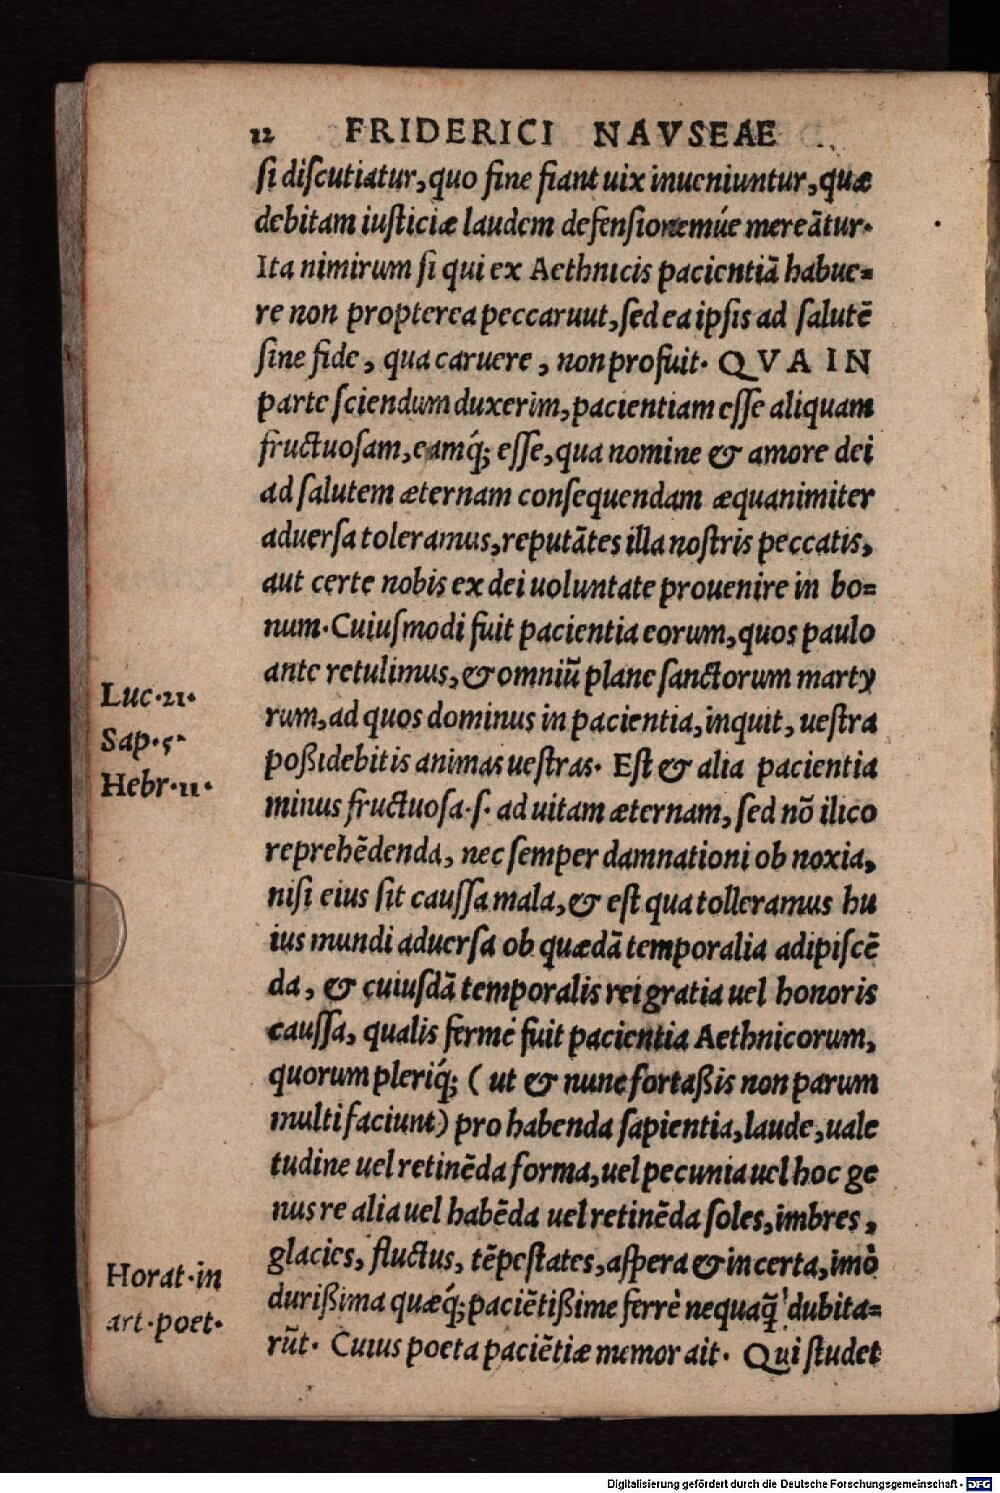 12 FRIDERICI NAVSEAE
si diſcutiatur, quo fine fiant uix inueniuntur, quæ
debitam iuſticiæ laudem defenſionemúe mereātur.
Ita nimirum ſi qui ex Aethnicis pacientiā habue=
re non propterea peccaruut, ſed ea ipſis ad ſalutē
ſine fide, qua caruere, non profuit. QVA IN
parte ſciendum duxerim, pacientiam eſſe aliquam
fructuoſam, eamq́; eſſe, qua nomine & amore dei
ad ſalutem æternam conſequendam æquanimiter
aduerſa toleramus, reputātes illa noſtris peccatis,
aut certe nobis ex dei uoluntate prouenire in bo=
num. Cuiuſmodi fuit pacientia eorum, quos paulo
ante retulimus, & omniū plane ſanctorum marty
rum, ad quos dominus in pacientia, inquit, ueſtra
poßidebitis animas ueſtras. Eſt & alia pacientia
minus fructuoſa .ſ. ad uitam æternam, ſed nō ilico
reprehēdenda, nec ſemper damnationi ob noxia,
niſi eius ſit cauſſa mala, & eſt qua tolleramus hu
ius mundi aduerſa ob quædā temporalia adipiſcē
da, & cuiuſdā temporalis rei gratia uel honoris
cauſſa, qualis fermè fuit pacientia Aethnicorum,
quorum pleriq́; ( ut & nunc fortaßis non parum
multi faciunt) pro habenda ſapientia, laude, uale
tudine uel retinēda forma, uel pecunia uel hoc ge
nus re alia uel habēda uel retinēda ſoles, imbres,
glacies, fluctus, tēpeſtates, aſpera & incerta, imò
durißima quæq́; paciētißime ferrè nequaq̄ dubita=
rūt. Cuius poeta paciētiæ memor ait. Qui ſtudet
Luc. 21.
Sap. 5.
Hebr. 11.
Horat. in
art. poet.
Digitalisierung gefördert durch die Deutsche Forschungsgemeinschaft - DFG